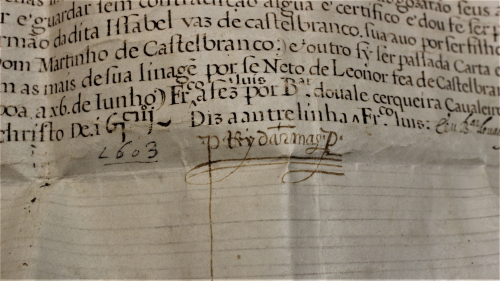 r e guardar sem contradição algũa e certifico e dou fe ser
rmão da dita Issabel vaz de castelbranco, sua avo por ser filh
Dom Martinho de Castelbranco; e outro sy ser passada Carta
m as mais de sua linagẽ por se Neto de Leonor fea de Castelbran
boa, a xb. de Iunho) Frco luis a fez por Dº douale cerqueira Caualeiro
christo De.i Diz a antrelinha Frco luis:
1603
p. Rey darmas p.